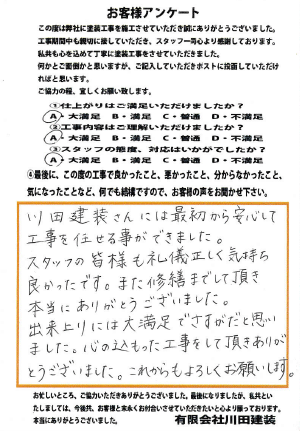 お客様アンケート
この度は弊社に塗装工事を施工させていただき誠にありがとうございました。
工事期間中も親切に接していただき、スタッフ一同心より感謝しております。
私共も心を込めて丁寧に塗装工事をさせていただきました。
何かとご面倒かと思いますが、ご記入していただきポストに投函していただけ
ればと思います。
ご協力の程、宜しくお願い致します。
①仕上がりはご満足いただけましたか?
A・大満足 B・満足 C・普通 D・不満足
②工事内容はご理解いただけましたか?
A・大満足 B・満足 C・普通 D・不満足
③スタッフの態度、対応はいかがでしたか?
A・大満足 B・満足 C・普通 D・不満足
④最後に、この度の工事で良かったこと、悪かったこと、分からなかったこと、
気になったことなど、何でも結構ですので、お客様の声をお聞かせ下さい。
川田建装さんには最初から安心して
工事を任せる事ができました。
スタッフの皆様も礼儀正しく気持ち
良かったです。また修繕までして頂き
本当にありがとうございました。
出来上りには大満足でさすがだと思い
ました。心の込もった工事をして頂きありが
とうございました。これからもよろしくお願いします。
お忙しいところ、ご協力いただきありがとうございました。最後になりましたが、私共とい
たしましては、今後共、お客様と末永くお付合いさせていただきたいと心より願っております。
本当にありがとうございました。
有限会社川田建装